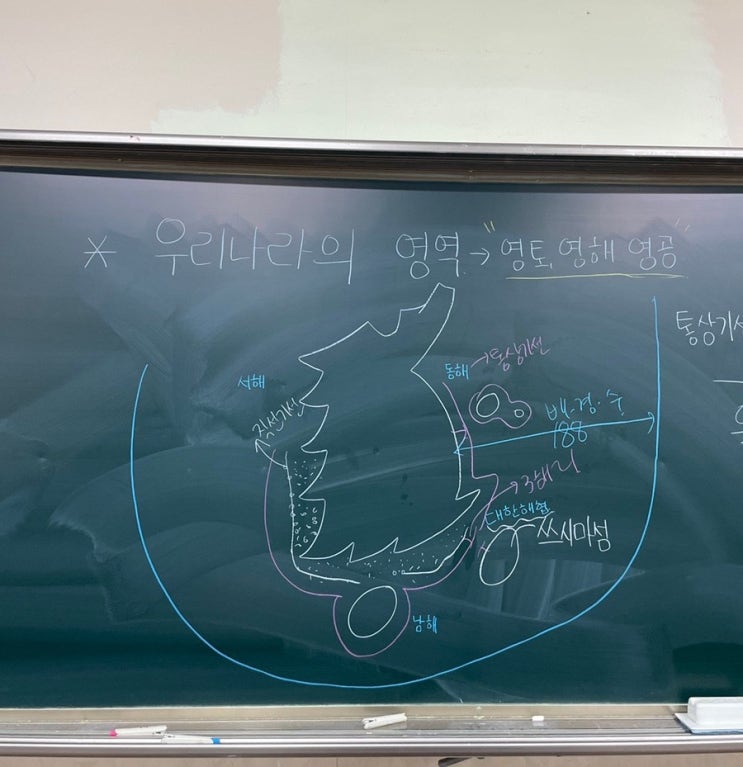 * 우리나라의 영역 → "영토, 영해 영공"
통상기선
서해
동해 → 통상기선
직선기선
배·경·수
188
→ 3해리
대한해협
쓰시마섬
남해